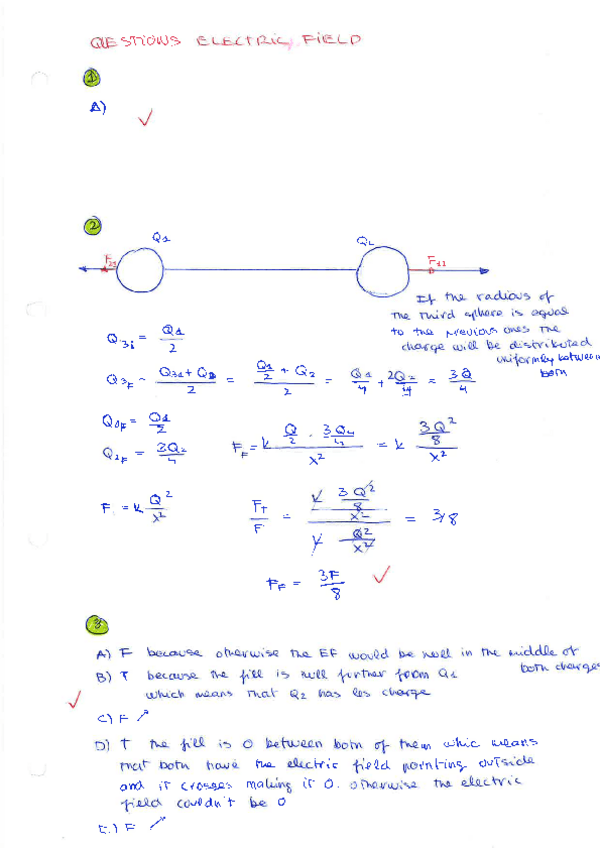 QUESTIONS ELECTRIC FIELD
1
A)
2
Q1 Q2
F21 F12
If the radious of
the third sphere is equal
to the previous ones the
charge will be distributed
uniformly between
both
Q3i = Q1/2
Q3F = (Q3i + Q2)/2 = (Q1/2 + Q2)/2 = Q1/4 + 2Q2/4 = 3Q/4
Q1F = Q1/2
Q2F = 3Q2/4
FF = k (Q/2 · 3Q2/4)/x² = k (3Q²/8)/x²
F = k Q²/x²
= (k (3Q²/8)/x²)/(k Q²/x²) = 3/8
FF = 3F/8
3
A) F because otherwise the EF would be null in the middle of
both charges
B) T because the fill is null further from Q1
which means that Q2 has les charge
C) F
D) T the fill is 0 between both of them whic means
that both have the electric field pointing outside
and it crosses making it 0. otherwise the electric
field couldn't be 0
E) F